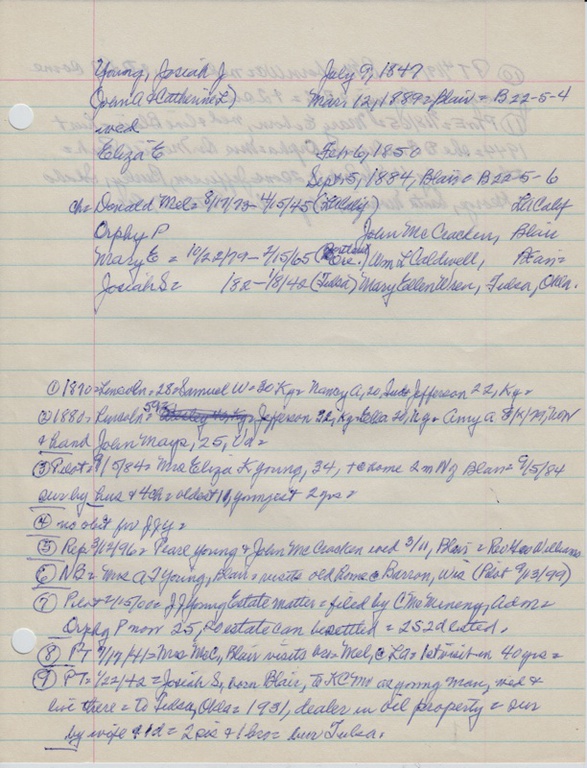 Young, Josiah J July 9, 1847
(John A & Catherine L) Mar 12, 1889 = Blair = B 22-5-4
wed
Eliza E Feb 6, 1850
Sept 5, 1884, Blair = B 22-5-6
ch = Donald Mel = 8/17/73 - 4/15/45 (LA Calif) LA Calif
Orphy P John McCracken, Blair
Mary E = 10/22/79 - 2/15/65 (Portland Ore.) Wm L Caldwell, Blair =
Josiah S = 182 - 1/18/42 (Tulsa) Mary Ellen Wren, Tulsa, Okla.
① 1870 = Lincoln = 28 = Samuel W = 30 Ky = Nancy A, 20, Ind = Jefferson 22, Ky =
② 1880 = Lincoln = 593 = Jefferson 32, Ky = Ella 20, Ky = Amy A 8/12, Mo
& hand John Mays, 25, Va =
③ Pilot = 9/5/84 = Mrs Eliza K Young, 34, @ home 2 m N of Blair = 9/5/84
sur by hus & 4 ch = oldest 10, youngest 2 yrs =
④ no obit for JJY =
⑤ Rep 3/12/96 = Pearl Young & John McCracken wed 3/11, Blair = Rev Geo Williams
⑥ NB = Mrs A J Young, Blair = visits old home @ Barron, Wis (Pilot 9/13/99)
⑦ Pilot = 2/15/00 = J J Young Estate matter = filed by C McMenemy, Adm =
Orphy P now 25, so estate can be settled = 252 dested.
⑧ PT 7/17/41 = Mrs McC, Blair visits bro = Mel, @ LA = 1st visit in 40 yrs =
⑨ PT = 1/22/42 = Josiah S, born Blair, to KC Mo as young man, wed &
live there = to Tulsa, Okla = 1931, dealer in oil property = sur
by wife & 1 d = 2 sis & 1 bro = bur Tulsa.